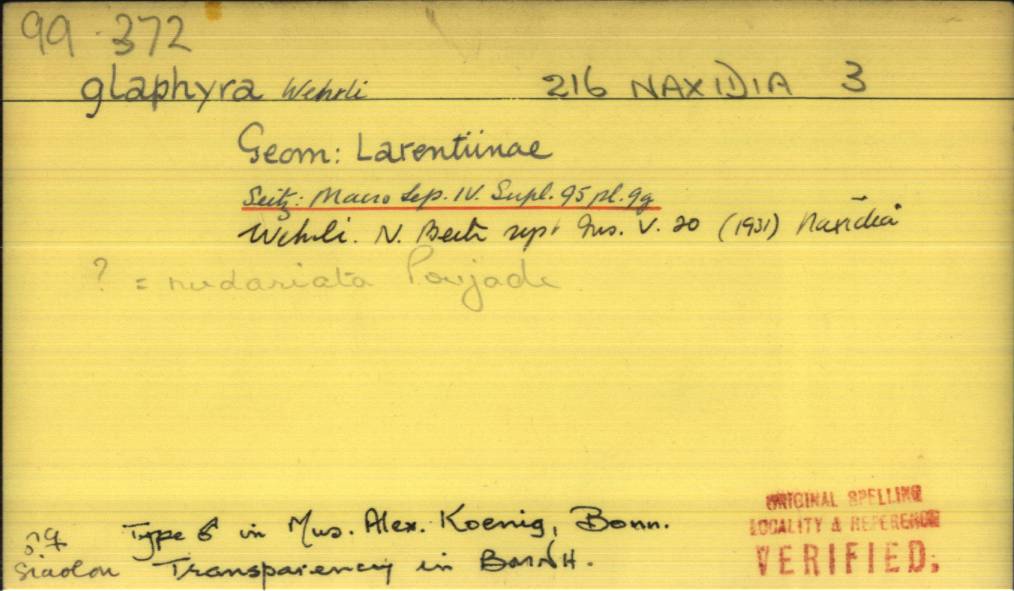 99.372
glaphyra Wehrli 216 NAXIDIA 3
Geom: Larentiinae
Seitz: Macro Lep. IV. Supl. 95 pl. 9g
Wehrli. N. Beitr syst Ins. V. 20 (1931) Naxidia
? = nudariata Poujade
♂♀ Type ♂ in Mus. Alex. Koenig, Bonn.
Siaolou Transparency in BMNH.
ORIGINAL SPELLING
LOCALITY & REFERENCE
VERIFIED.